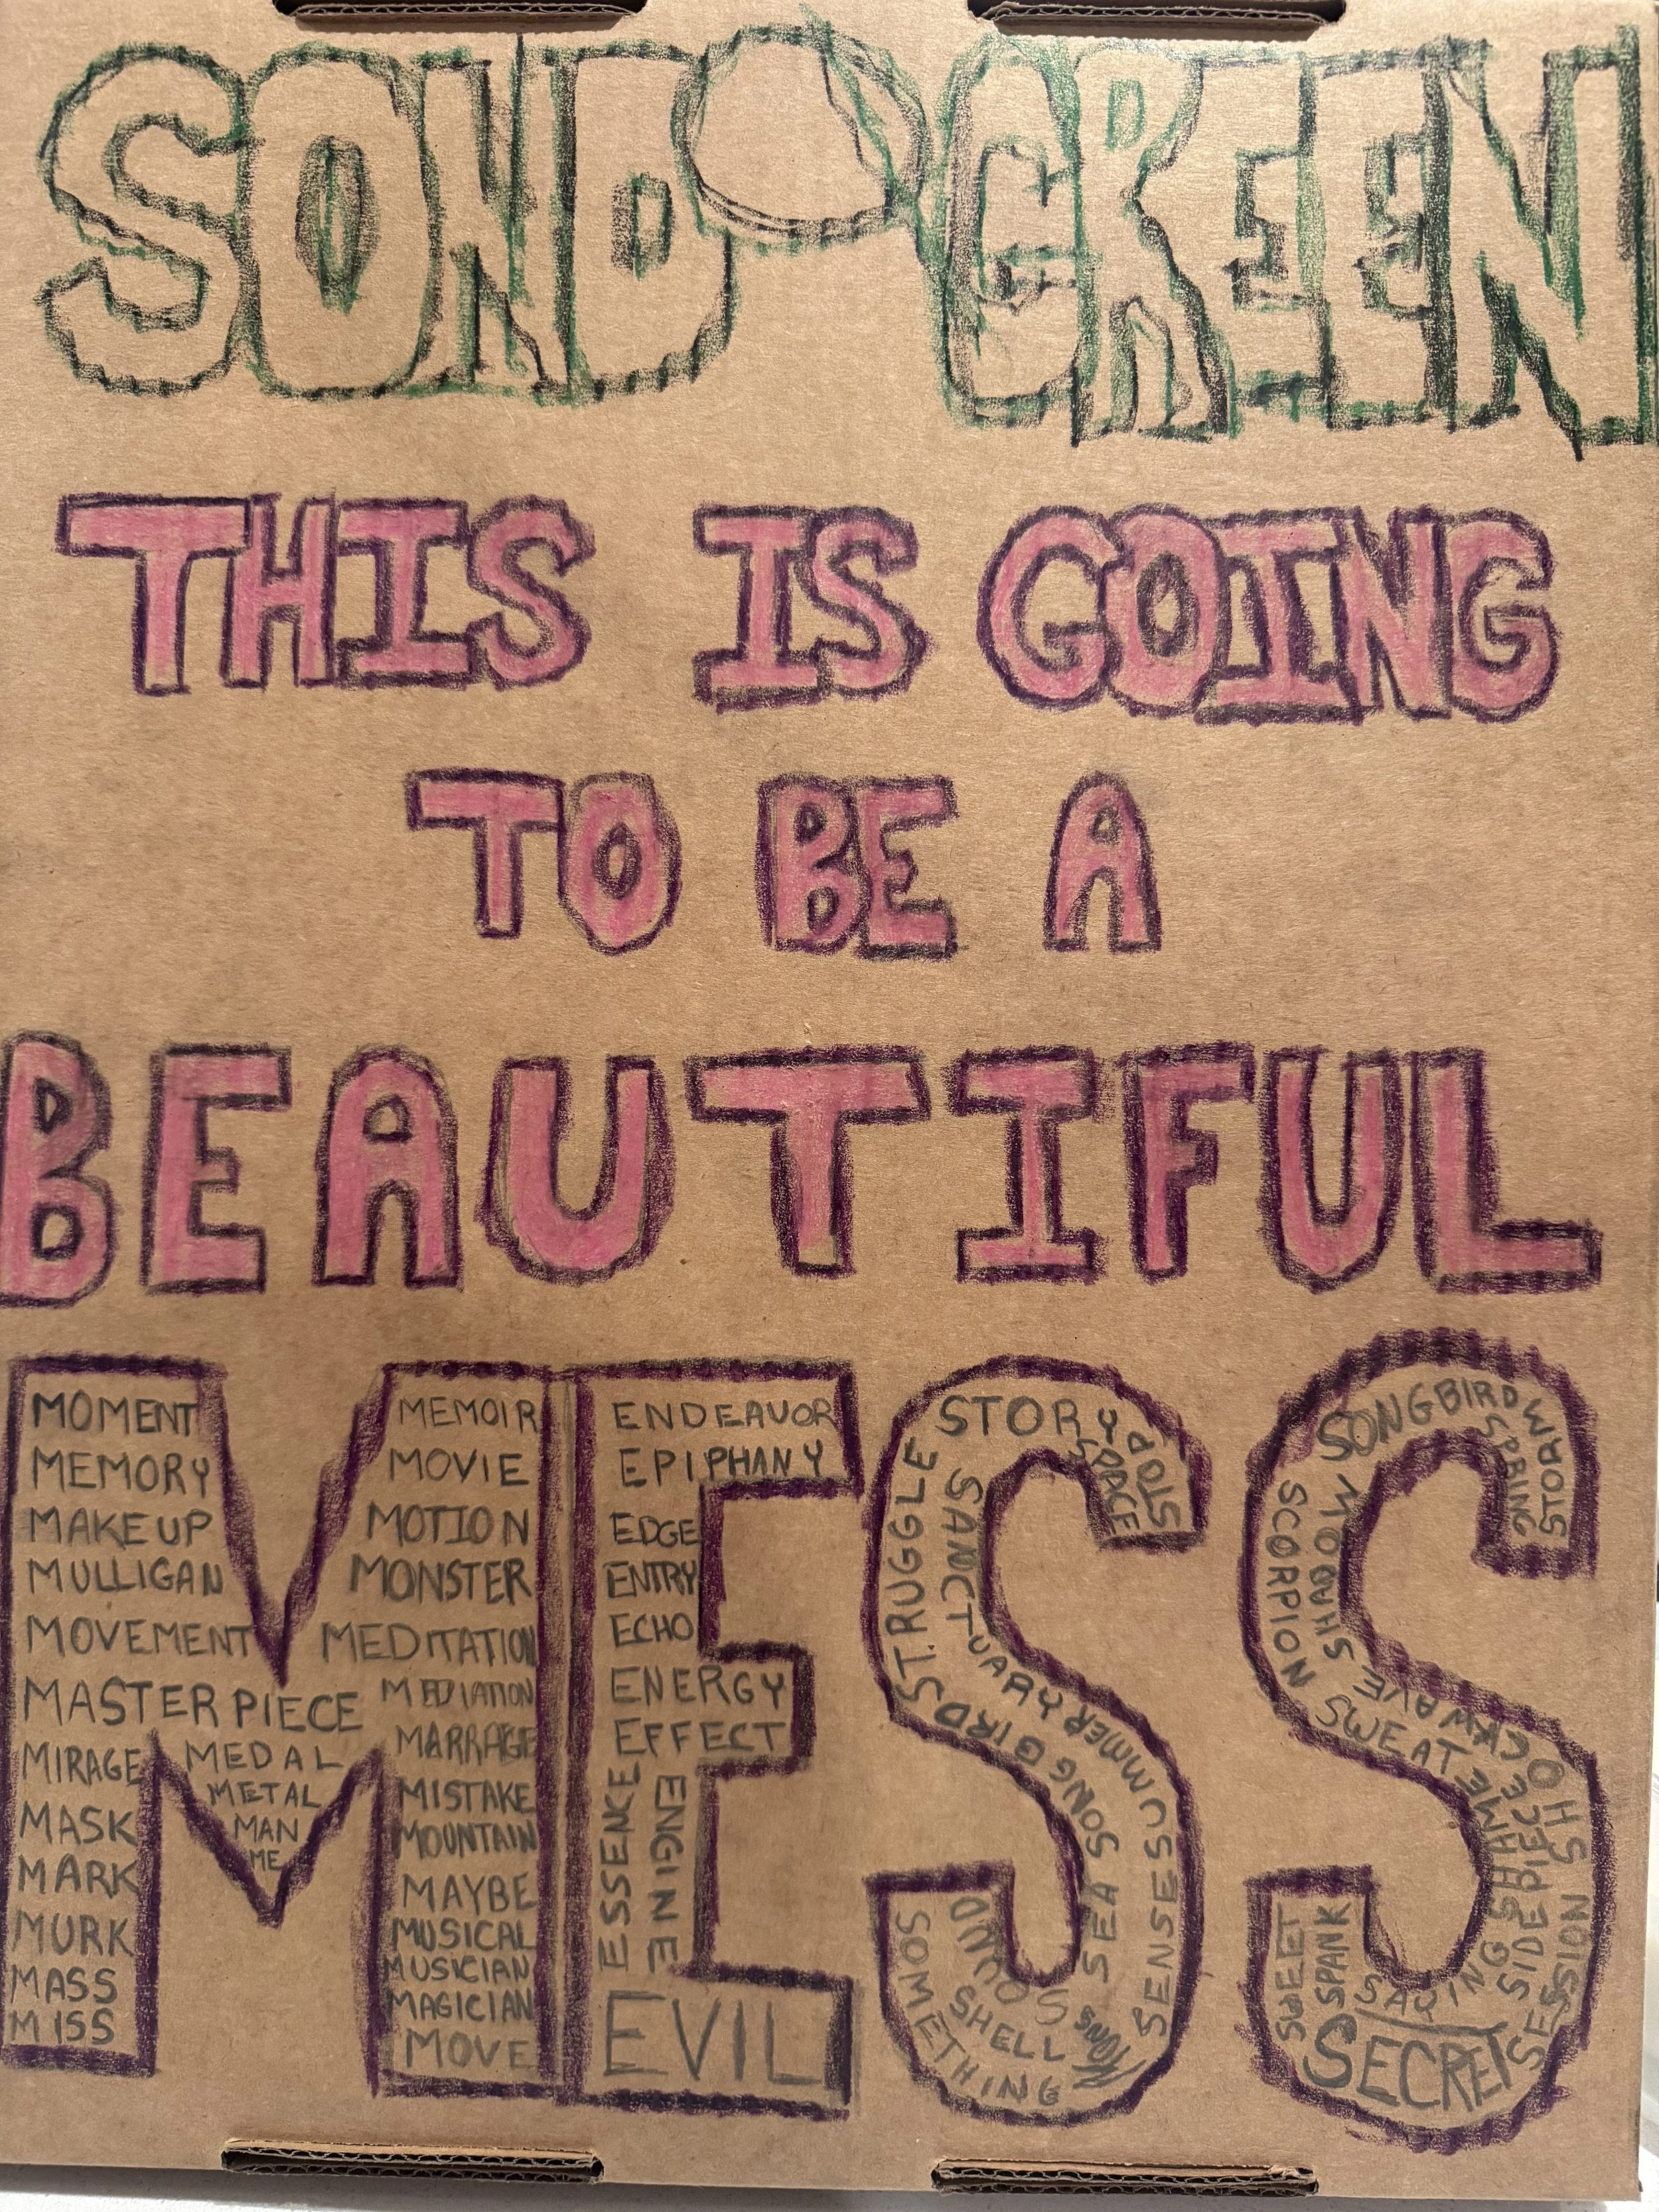 SOND GREEN
THIS IS GOING
TO BE A
BEAUTIFUL
MESS
MOMENT
MEMORY
MAKEUP
MULLIGAN
MOVEMENT
MASTERPIECE
MIRAGE
MASK
MARK
MURK
MASS
MISS
MEDAL
METAL
MAN
ME
MEMOIR
MOVIE
MOTION
MONSTER
MEDITATION
MEDIATION
MARRAGE
MISTAKE
MOUNTAIN
MAYBE
MUSICAL
MUSICIAN
MAGICIAN
MOVE
ENDEAVOR
EPIPHANY
EDGE
ENTRY
ECHO
ENERGY
EFFECT
ESSENCE
ENGINE
EVIL
STORY
STOP
SPACE
STRUGGLE
SANCTUARY
SONGBIRD
SUMMER
SONG
SEA
SENSES
SOUND
SHELL
SOMETHING
SNOW
SONGBIRD
STORM
SPRING
SCORPION
SHADOW
SWEAT
SHAME
SIDEPIECE
SESSION
SAYING
SWEET
SPANK
SECRET